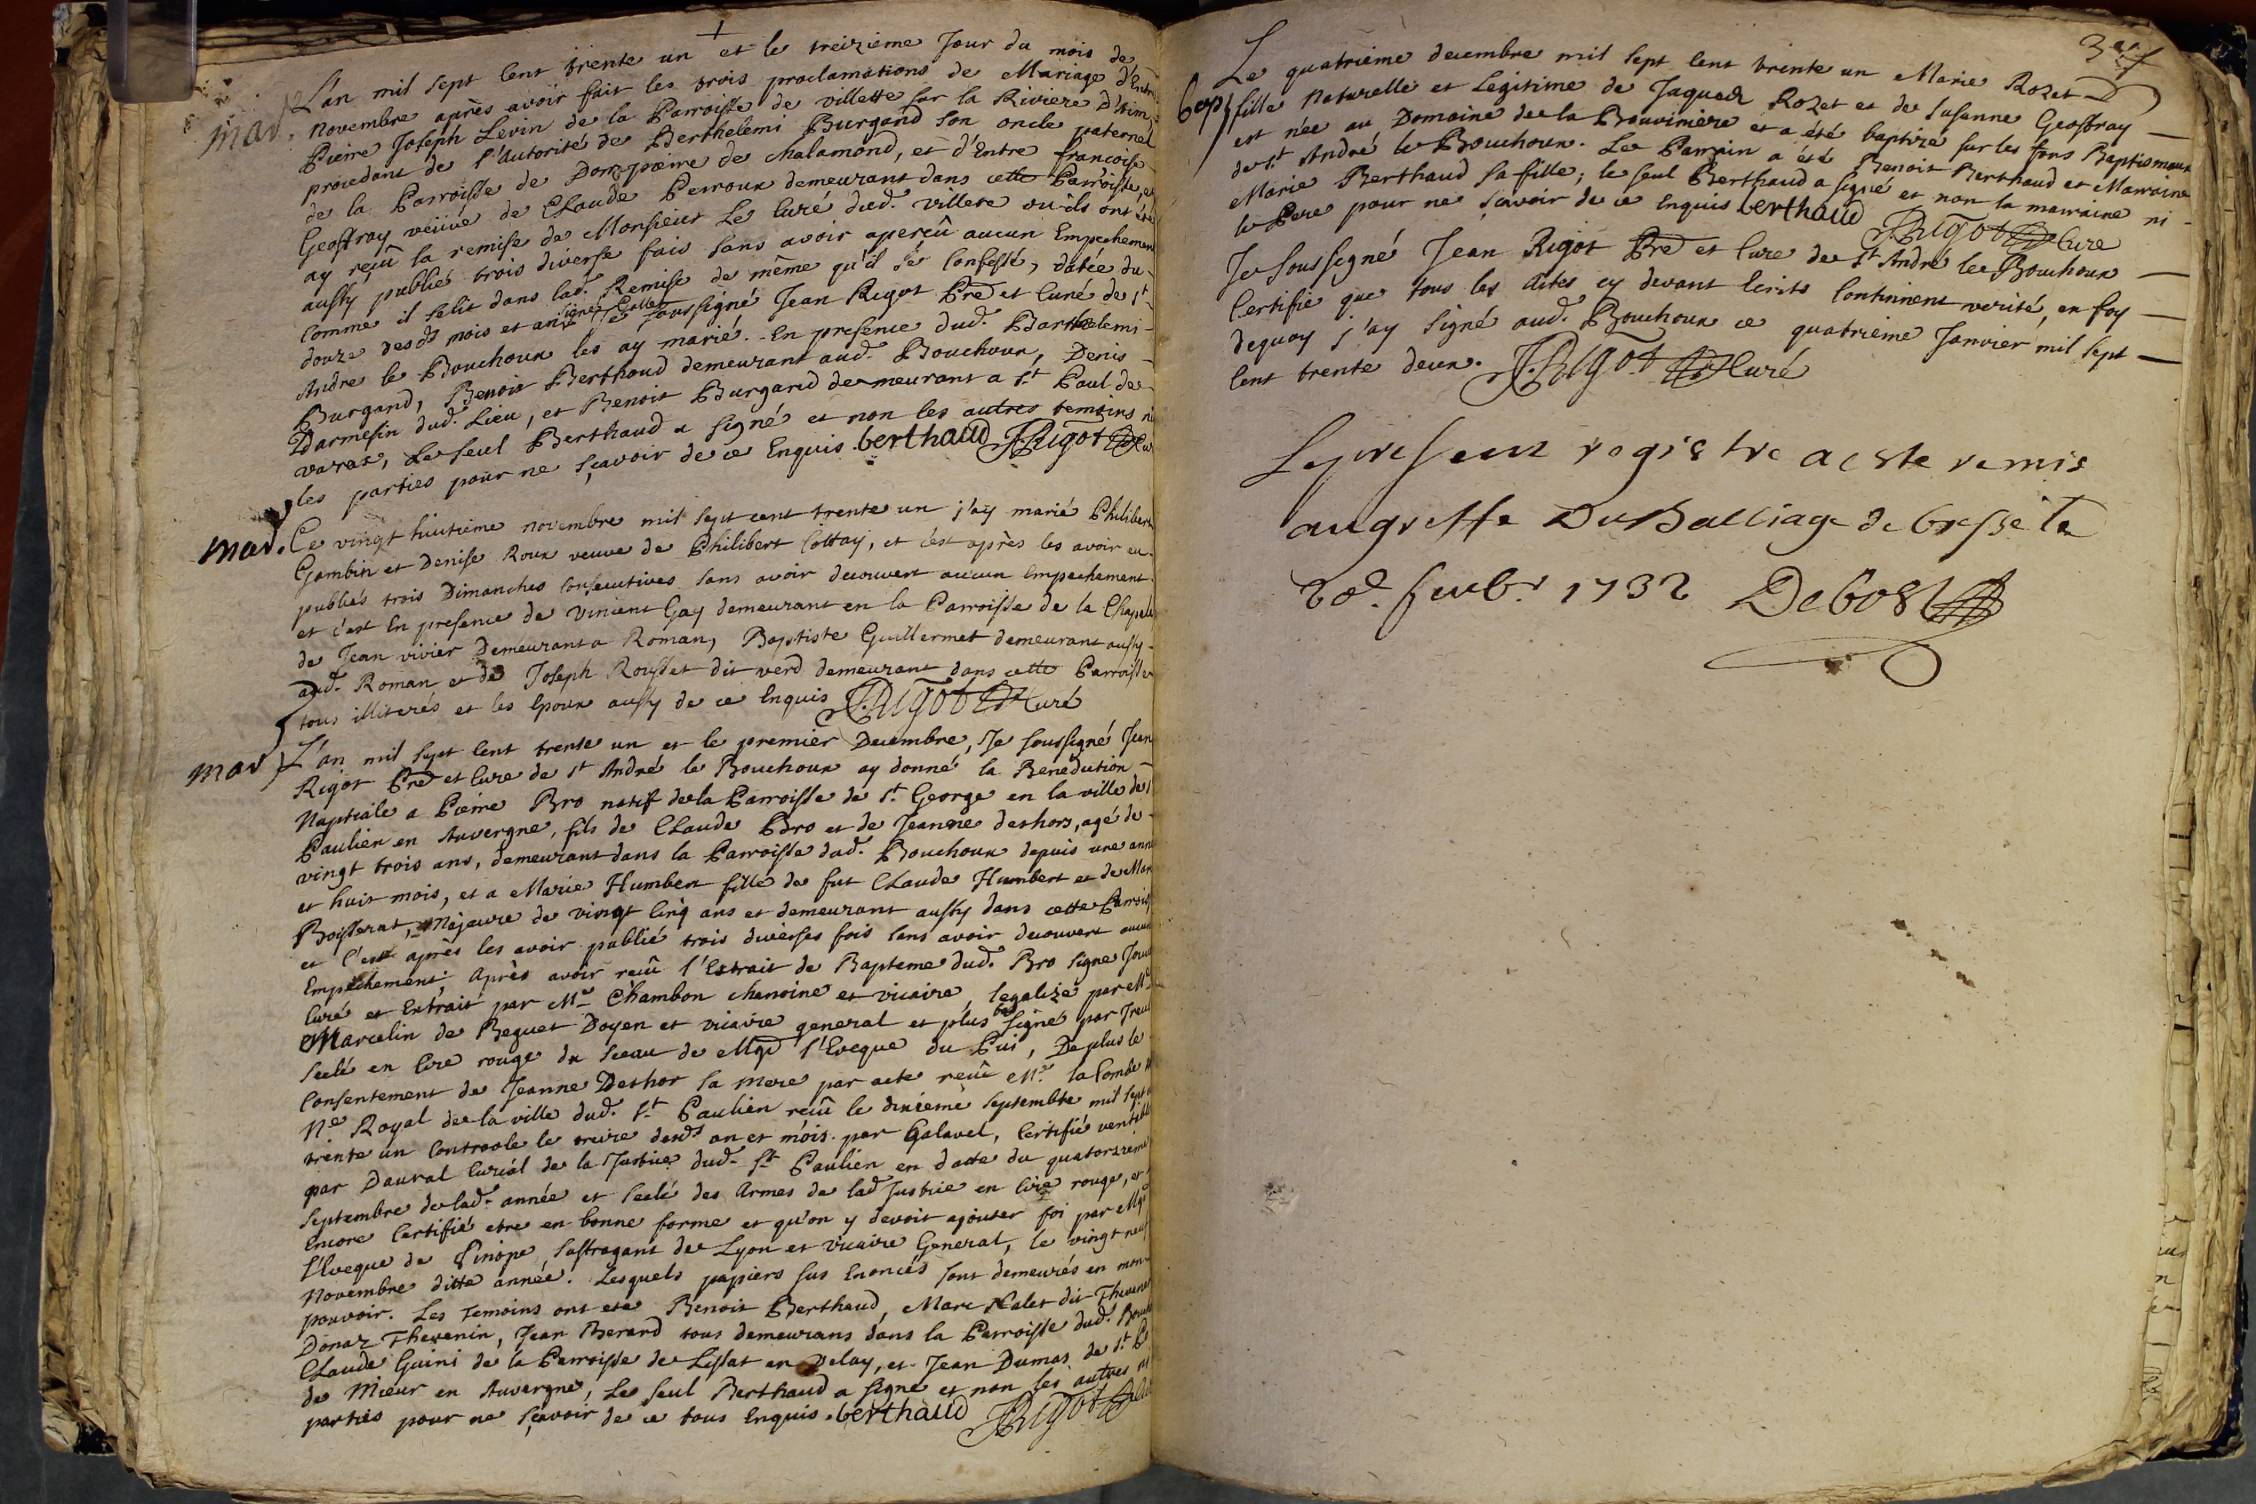 +
L'an mil sept Cent trente un et le treizieme Jour du mois de
mar. novembre après avoir fait les trois proclamations de Mariage d'Entre
Pierre Joseph Levin de la Parroisse de villette sur la Riviere D'
procedant de l'Autorité de Berthelemi Burgand son oncle paternel
de la Parroisse de Dompierre de chalamond, et d'Entre francoise
Geoffray veüve de Claude Perroux demeurant dans cette Parroisse, et
ay reçû la remise de Monsieur Le Curé dud. villete ou ils ont été
aussy publié trois diverse fois sans avoir aperçû aucun Empechement
Comme il se lit dans lad. Remise de même qu'il s'é Confessé, datée du
douze desds mois et an signé Collet Je soussigné Jean Rigot Pre et Curé de St
Andre le Bouchoux les ay marié. En presence dud. Barthelemi
Burgand, Benoit Berthaud demeurant aud. Bouchoux, Denis
Darmesin dud. Lieu, et Benoit Burgand demeurant a St Paul de
varax, Le seul Berthaud a signé et non les autres temoins ni
les parties pour ne sçavoir de ce Enquis. berthaud JRigot Cur
mar. Ce vingt huitieme novembre mil sept cent trente un j'ay marié Philibert
Gambin et Denise Roux veuve de Philibert Cottay, et c'est après les avoir eu
publiés trois Dimanches Consecutives sans avoir decouvert aucun Empechement
et c'est En presence de vincent Gay demeurant en la Parroisse de la Chapele
de Jean vivier Demeurant a Roman, Baptiste Guillermet demeurant aussy
aud. Roman et de Joseph Rousset dit verd demeurant dans cette Parroisse
tous illiterés et les Epoux aussy de ce Enquis JRigot Curé
mar L'an mil sept Cent trente un et le premier Decembre, Je soussigné Jean
Rigot Pre et Cure de St André le Bouchoux ay donné la Benediction
Nuptiale a Pierre Bro natif de la Parroisse de St. George en la ville de St
Paulien en Auvergne, fils de Claude Bro et de Jeanne deshors, agé de
vingt trois ans, demeurant dans la Parroisse dud. Bouchoux depuis une anné
et huit mois, et a Marie Humbert fille de fut Claude Humbert et de Mar
Boisserat, Majeure de vingt Cinq ans et demeurant aussy dans cette Parroiss
et C'est après les avoir publié trois diverses fois sans avoir decouvert aucun
Empechement, Après avoir reçû l'Extrait de Bapteme dud. Bro signe
Curé et Extrait par Mre Chambon chanoine et vicaire, legalizé par Mr
Marcelin de Beguet Doyen et vicaire general et plus bas signé par
sçelé en Cire rouge du sceau de Mgr l'Eveque du Pui, De plus le
Consentement de Jeanne Deshor sa mere par acte reçû Mre la Combe
Nre Royal de la ville dud. St Paulien reçû le dixieme septembre mil sept
trente un Controole le treize desds an et mois par Galavel, Certifié veritable
par Daural Curial de la Justice dud. St Paulien en datte du quatorzieme
septembre de lad. année et scelé des Armes de lad Justice en Cire rouge, et
Encore Certifié etre en bonne forme et qu'on y devoit ajouter foi par Mgr
l'Eveque de Sinope suffragant de Lyon et vicaire General, le vingt neuf
Novembre ditte année. Lesquels papiers sus Enoncés sont demeurés en mon
pouvoir. Les temoins ont ete Benoit Berthaud, Marc Nalet dit Thevenin
Donaz Thevenin, Jean Berard tous demeurans dans la Parroisse dud. Bouch
Claude Guini de la Parroisse de Lissat en Velay, et Jean Dumas de St
de Mieur en Auvergne, Le seul Berthaud a signe et non les autres ni
parties pour ne sçavoir de ce tous Enquis. berthaud JRigot
Le quatrieme decembre mil sept Cent trente un Marie Rozet
bap fille Naturelle et Legitime de Jaques Rozet et de susanne Geoffray
est née au Domaine de la Bouviniere et a été baptizé sur les fons Baptismaux
de St André le Bouchoux. Le Parrain a été Benoit Berthaud et Marraine
Marie Berthaud sa fille; le seul Berthaud a signé et non la marraine ni
le Pere pour ne sçavoir de ce Enquis berthaud JRigot Cure
Je soussigné Jean Rigot Pre et Cure de St André le Bouchoux
Certifie que tous les Actes cy devant Ecrits Contiennent verité, en foy
dequoy j'ay signé aud. Bouchoux ce quatrieme Janvier mil sept
Cent trente deux. J.Rigot Curé
Le present registre a este remis
au greffe Du Balliage de bresse le
20e. fevbr 1732 Debost